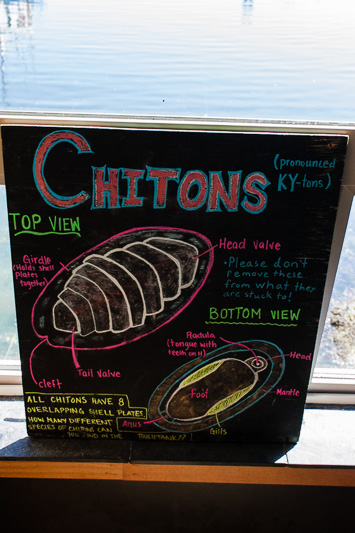 CHITONS
(pronounced
KY-tons)
TOP VIEW
Girdle
(Holds shell
plates
together)
Head valve
• Please don't
remove these
from what they
are stuck to!
BOTTOM VIEW
Tail valve
cleft
Radula
(tongue with
teeth on it)
Head
Foot
Mantle
Anus
Gills
ALL CHITONS HAVE 8
OVERLAPPING SHELL PLATES
HOW MANY DIFFERENT
SPECIES OF CHITONS CAN
YOU FIND IN THE TOUCH TANK??